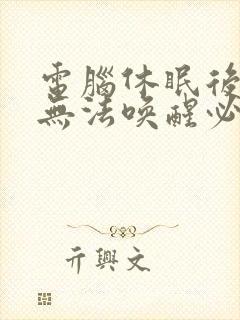 電腦休眠後
無法喚醒必
亓興文